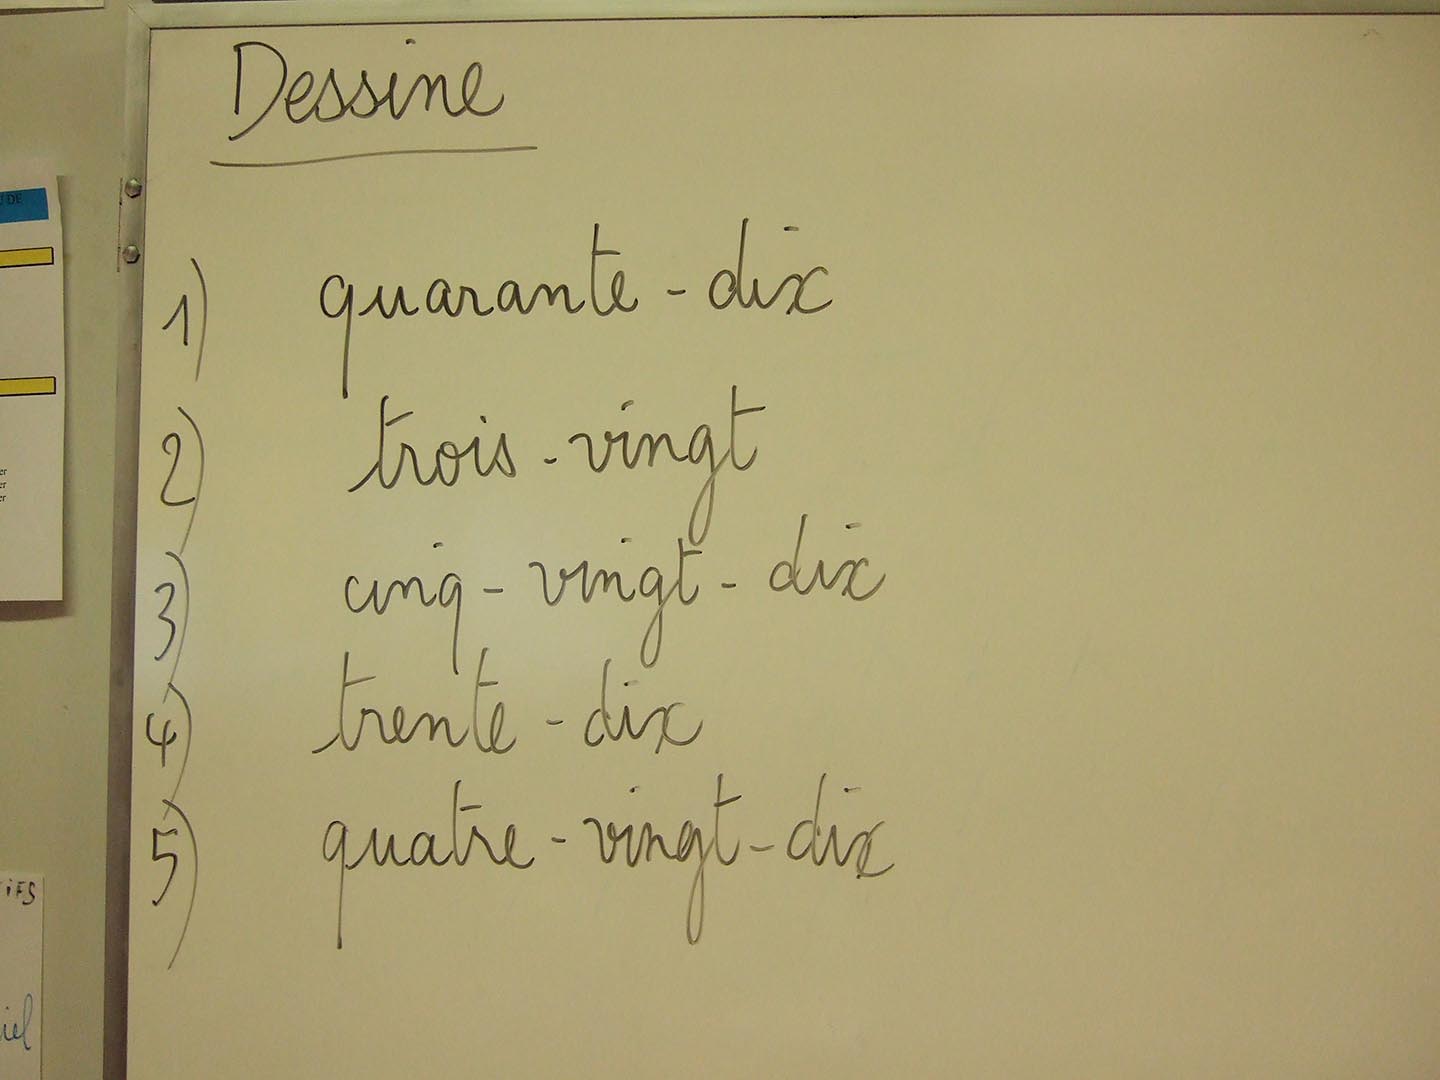 Dessine
1) quarante-dix
2) trois-vingt
3) cinq-vingt-dix
4) trente-dix
5) quatre-vingt-dix
U DE
er
er
er
iFS
iel